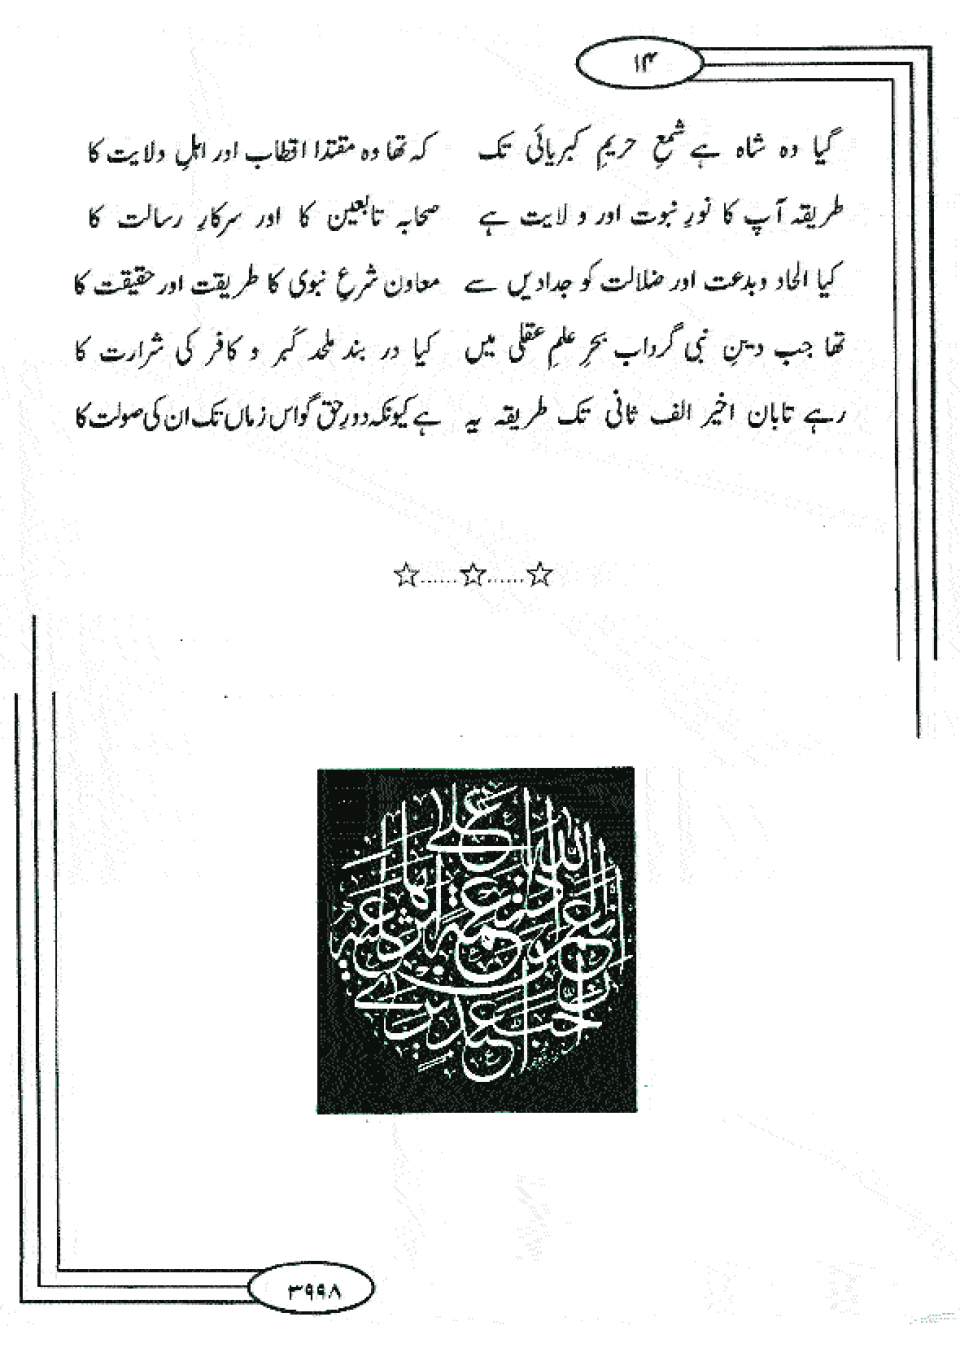 ۱۴
گیا وہ شاہ ہے شمعِ حریمِ کبریائی تک کہ تھا وہ مقتدا اقطاب اور اہلِ ولایت کا
طریقہ آپ کا نورِ نبوت اور ولایت ہے صحابہ تابعین کا اور سرکارِ رسالت کا
کیا الحاد و بدعت اور ضلالت کو جدا دیں سے معاون شرعِ نبوی کا طریقت اور حقیقت کا
تھا جب دینِ نبی گردابِ بحرِ علمِ عقلی میں کیا در بند ملحد گبر و کافر کی شرارت کا
رہے تاباں اخیر الف ثانی تک طریقہ یہ ہے کیونکہ دورِ حق گو اس زماں تک ان کی صولت کا
☆......☆......☆
۳۹۹۸